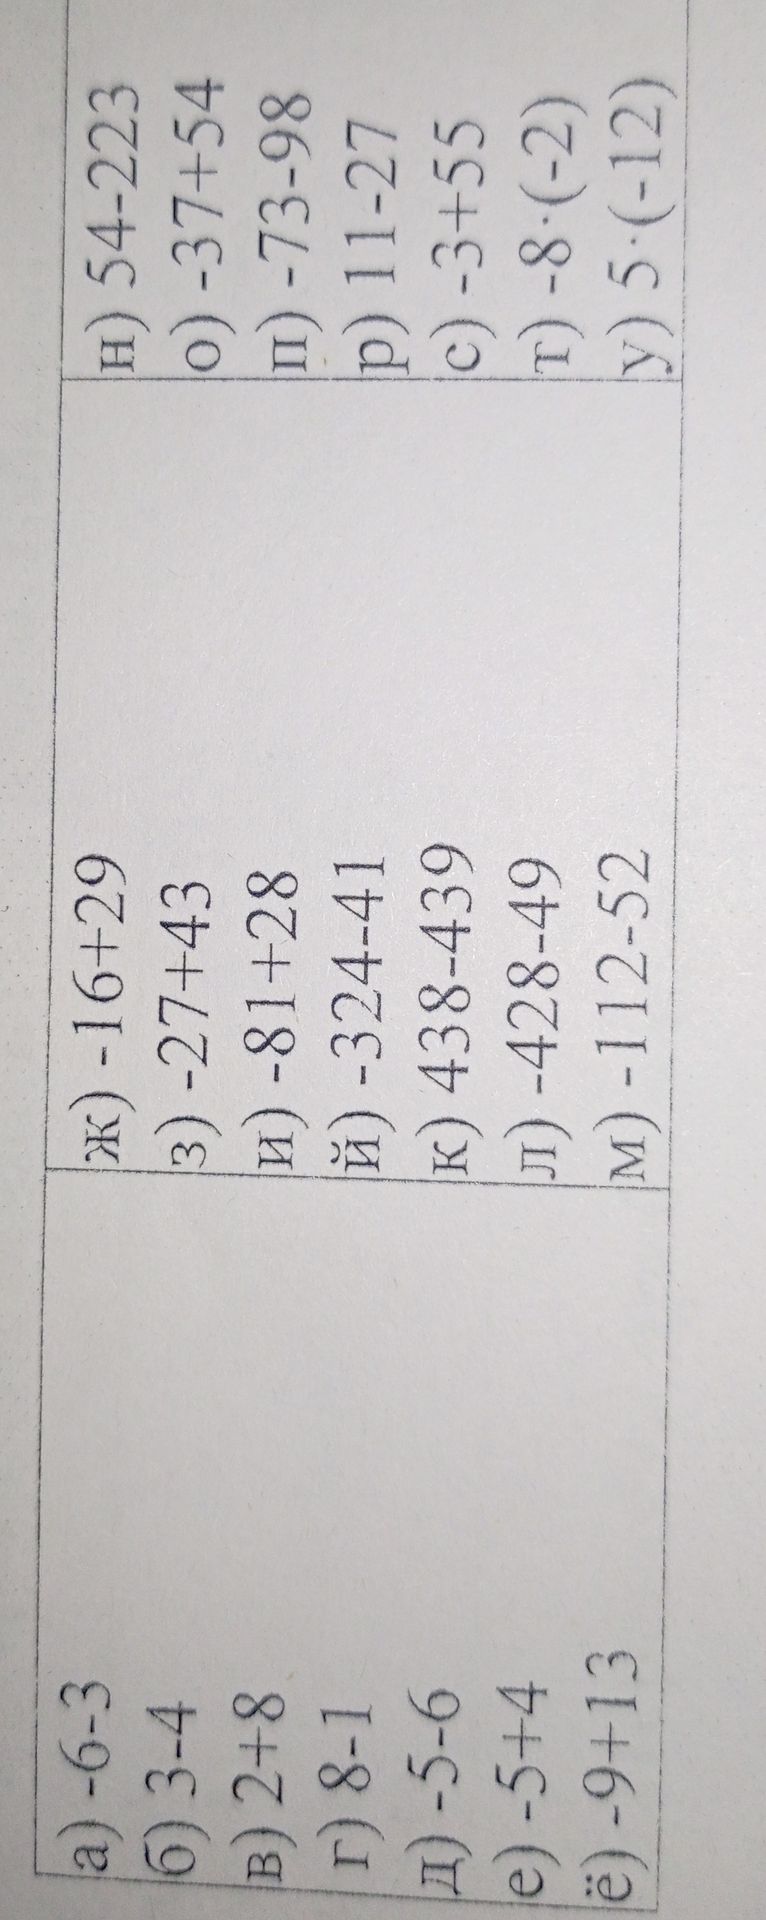 а) -6-3
б) 3-4
в) 2+8
г) 8-1
д) -5-6
е) -5+4
ё) -9+13
ж) -16+29
з) -27+43
и) -81+28
й) -324-41
к) 438-439
л) -428-49
м) -112-52
н) 54-223
о) -37+54
п) -73-98
р) 11-27
с) -3+55
т) -8·(-2)
у) 5·(-12)